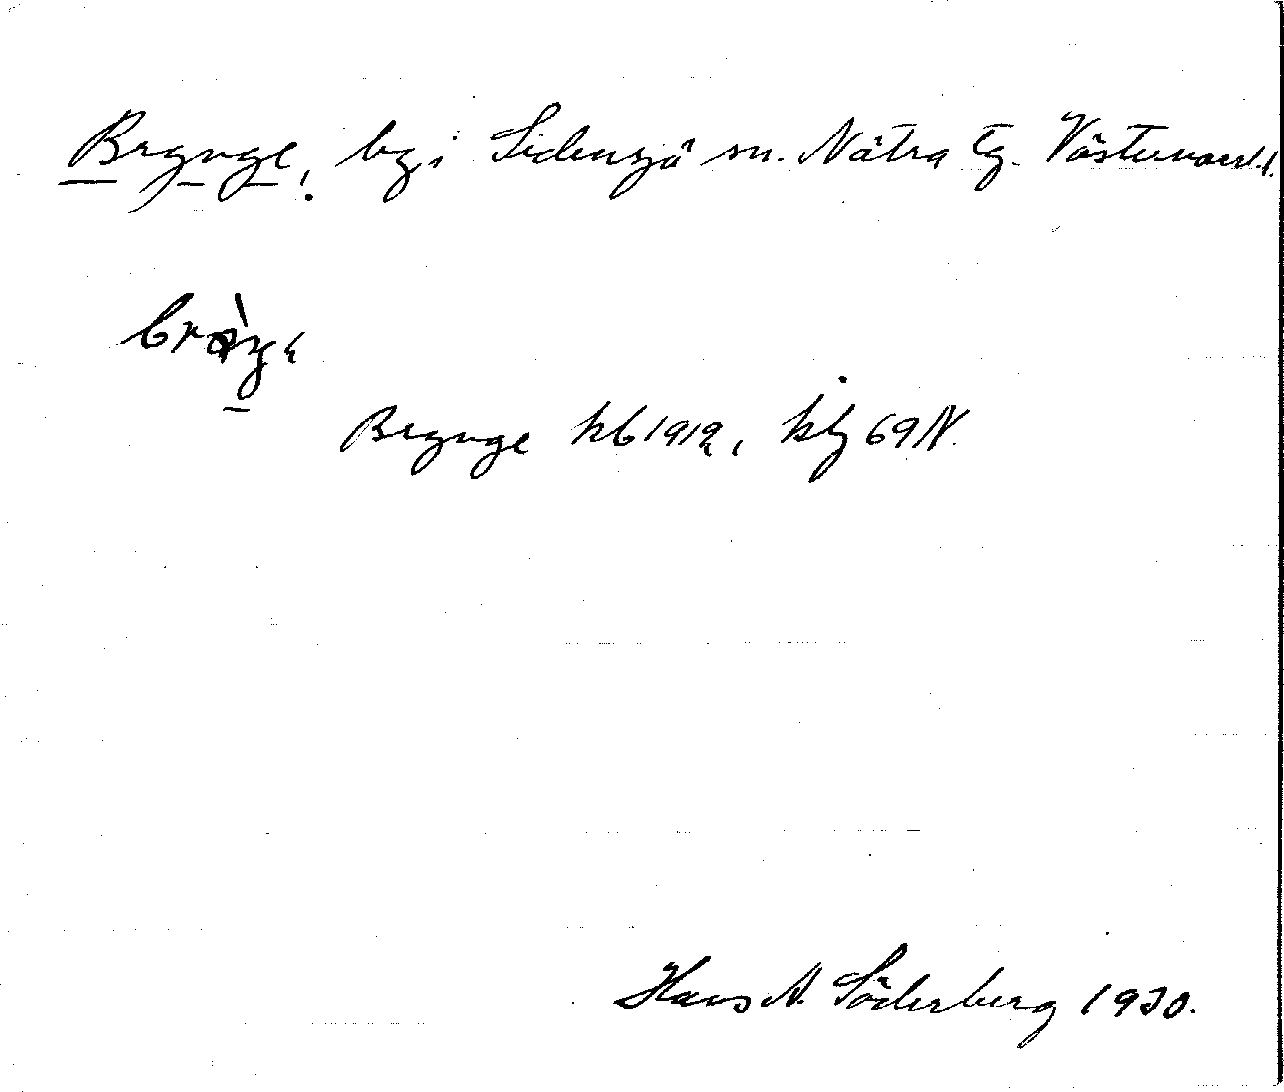 Brynge, by i Sidensjö sn. Nätra tg. Västernorrl. l.
Brynge kb 1912, hbg 69 N.
Hans A. Söderberg 1930.